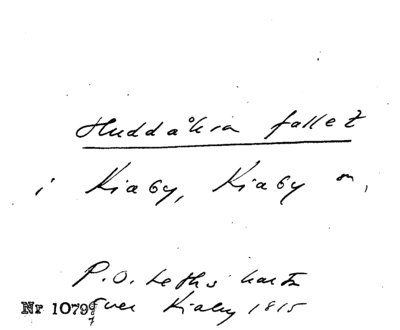 Huddåkra fallet
i Kiaby, Kiaby sn,
P.O. Leths karta
över Kiaby 1815
Nr 1079